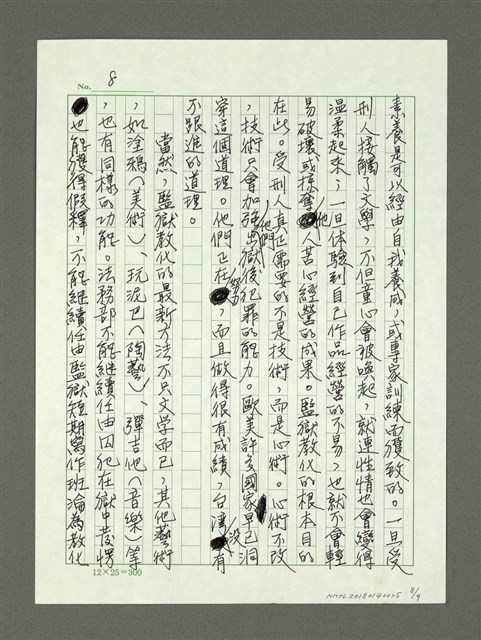 No. 8
素養是可以經由自我養成,或專家訓練而獲致的。一旦受
刑人接觸了文學,不但童心會被喚起,就連性情也會變得
溫柔起來;一旦体驗到自己作品經營的不易,也就不會輕
易破壞或掠奪他人苦心經營的成果。監獄教化的根本目的
在此。受刑人真正需要的不是技術,而是心術。心術不改
,技術只會加強他們出獄後犯罪的能力。歐美許多國家早已洞
穿這個道理。他們正在努,而且做得很有成績,台灣沒有
不跟進的道理。
當然,監獄教化的最新方法不只文学而已,其他藝術
,如塗鴉(美術)、玩泥巴(陶藝)、彈吉他(音樂)等
,也有同樣的功能。法務部不能繼續任由囚犯在獄中發愣
也能獲得假釋,不能繼續任由監獄短期寫作班淪為教化
12×25=300
NMTL20180140025
8/9